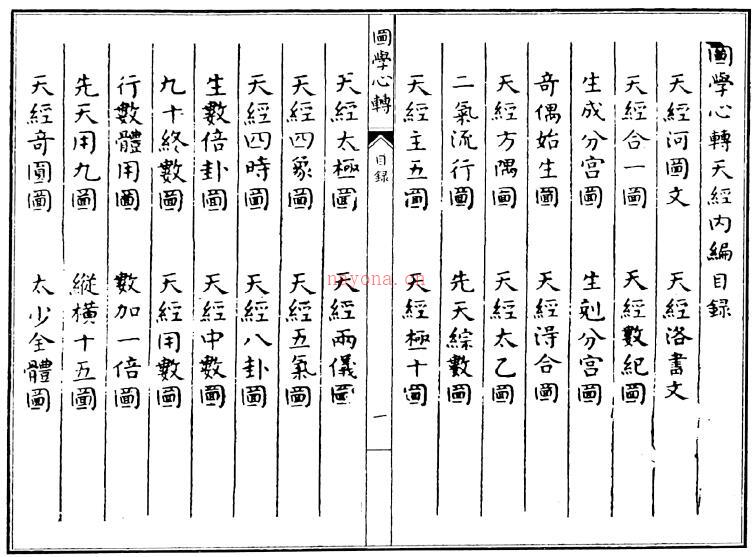 圖學心轉天經內編目録
天經河圖文　天經洛書文
天經合一圖　天經數紀圖
生成分宫圖　生剋分宫圖
奇偶始生圖　天經得合圖
天經方隅圖　天經太乙圖
二氣流行圖　先天綜數圖
天經主五圖　天經極十圖
圖學心轉　目録　一
天經太極圖　天經兩儀圖
天經四象圖　天經五氣圖
天經四時圖　天經八卦圖
生數倍卦圖　天經中數圖
九十終數圖　天經用數圖
行數體用圖　數加一倍圖
先天用九圖　縱横十五圖
天經奇圓圖　太少全體圖
nayona.cn